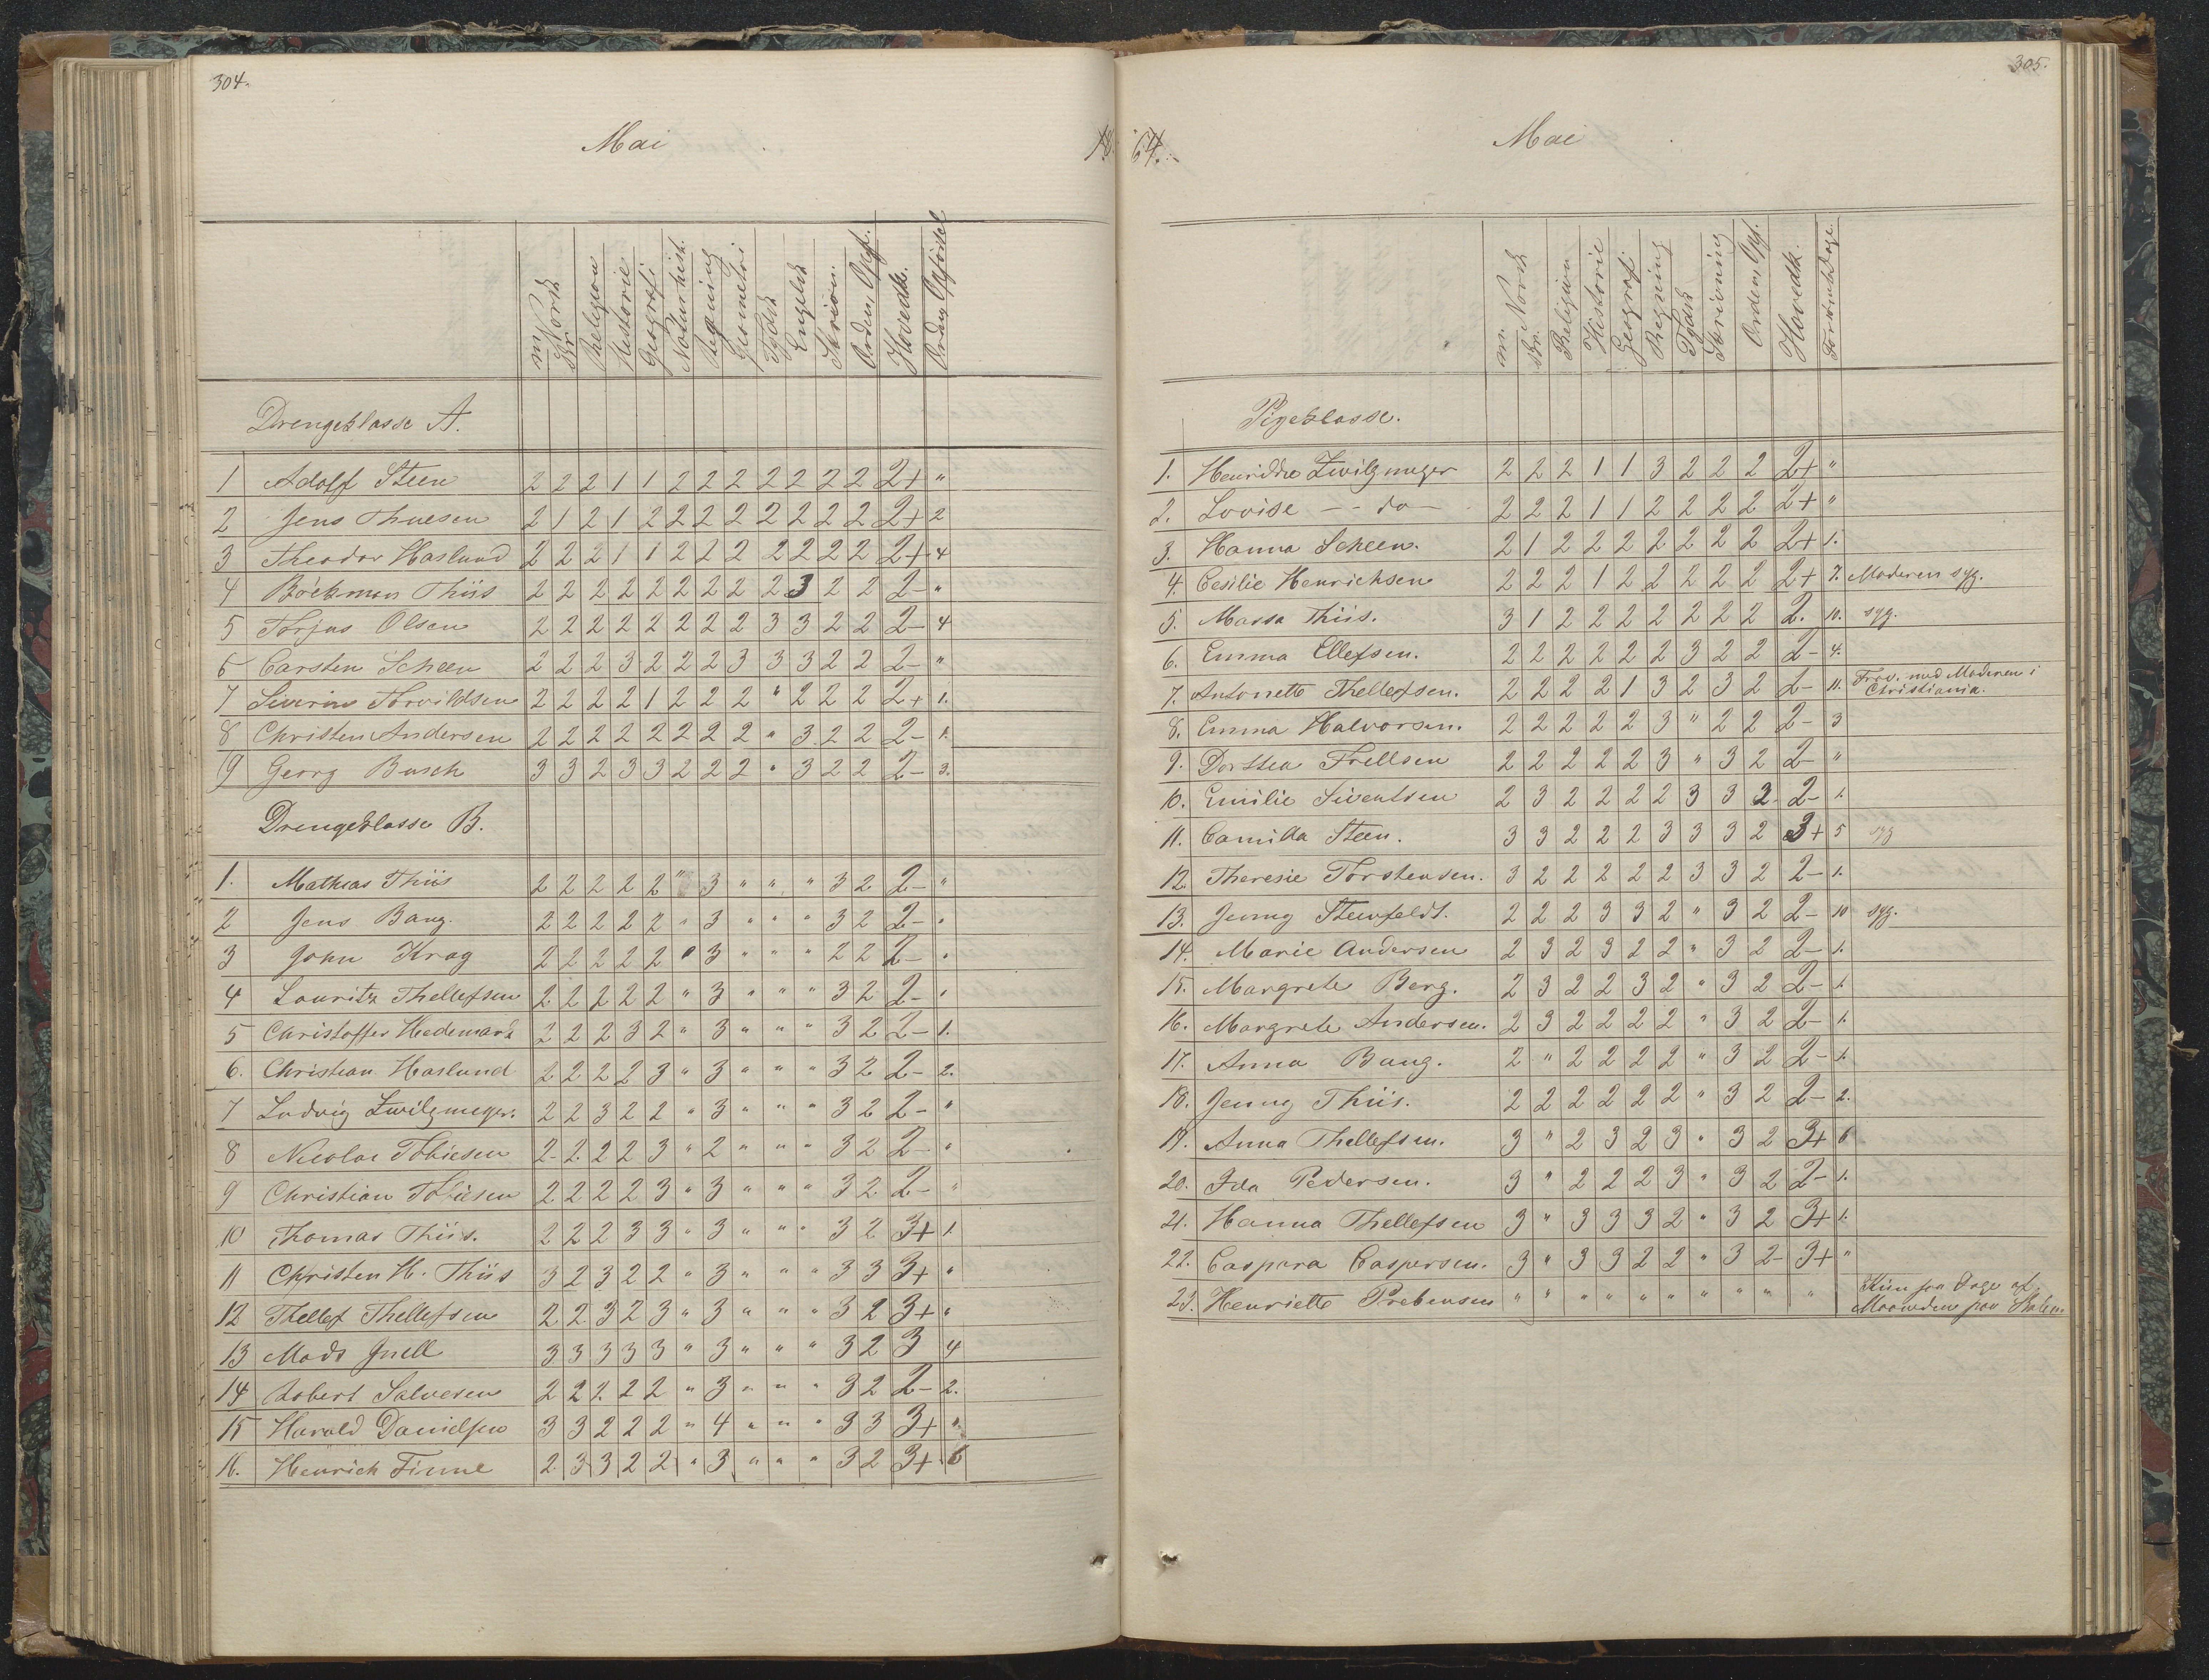 304.
Mai
18
m. Norsk
Skr.
Religion
Historie
Geografi
Naturhist.
Regning
Geometri
Tydsk
Engelsk
Skrivn.
Orden, Opf.
Hovedk.
Drengeklasse A.
1 Adolf Steen 2 2 2 1 1 2 2 2 2 2 2 2 2+ "
2 Jens Thuesen 2 1 2 1 2 2 2 2 2 2 2 2 2+ 2
3 Theodor Haslund 2 2 2 1 1 2 2 2 2 2 2 2 2+ 4
4 Böckman Thiis 2 2 2 2 2 2 2 2 2 3 2 2 2- "
5 Torjus Olsen 2 2 2 2 2 2 2 2 3 3 2 2 2- 4
6 Carsten Scheen 2 2 2 3 2 2 2 3 3 3 2 2 2- "
7 Severin Torvildsen 2 2 2 2 1 2 2 2 " 2 2 2 2+ 1.
8 Christen Andersen 2 2 2 2 2 2 2 2 " 3 2 2 2- 1.
9 Georg Busch 3 3 2 3 3 2 2 2 " 3 2 2 2- 3.
Drengeklasse B.
1. Mathias Thiis 2 2 2 2 2 " 3 " " " 3 2 2- "
2 Jens Bang. 2 2 2 2 2 " 3 " " " 3 2 2- "
3 John Krag 2 2 2 2 2 " 3 " " " 2 2 2- "
4 Lauritz Thellefsen 2 2 2 2 2 " 3 " " " 3 2 2- "
5 Christoffer Hedemark 2 2 2 3 2 " 3 " " " 3 2 2- 1.
6. Christian Haslund 2 2 2 2 3 " 3 " " " 3 2 2- 2.
7 Ludvig Zwilgmeyer. 2 2 3 2 2 " 3 " " " 3 2 2- "
8 Nicolai Tobiesen 2 2 2 2 3 " 2 " " " 3 2 2- "
9 Christian Tobiesen 2 2 2 2 3 " 3 " " " 3 2 2- "
10 Thomas Thiis. 2 2 2 3 3 " 3 " " " 3 2 3+ 1.
11 Christen H. Thiis 3 2 3 2 2 " 3 " " " 3 3 3+ "
12 Thellef Thellefsen 2 2 3 2 3 " 3 " " " 3 2 3+ "
13 Mads Juell 3 3 3 3 3 " 3 " " " 3 2 3 4
14 Robert Salvesen 2 2 2 2 2 " 3 " " " 3 2 2- 2.
15 Harald Danielsen 3 3 2 2 2 " 4 " " " 3 3 3+ "
16. Henrich Finne 2 3 3 2 2 " 3 " " " 3 2 3+ 6
305.
64.
Mai
m. Norsk
Skr.
Religion
Historie
Geografi
Regning
Tydsk
Skrivning
Orden, Opf.
Hovedk.
Pigeklasse.
1. Henrikke Zwilgmeyer 2 2 2 1 1 3 2 2 2 2+ "
2. Lovise -- do - 2 2 2 1 1 2 2 2 2 2+ "
3. Hanna Scheen. 2 1 2 2 2 2 2 2 2 2+ 1.
4. Cesilie Henrichsen 2 2 2 1 2 2 2 2 2 2+ 7. Moderen syg.
5. Massa Thiis. 3 1 2 2 2 2 2 2 2 2. 10. syg.
6. Emma Ellefsen. 2 2 2 2 2 2 3 2 2 2- 4.
7. Antonette Thellefsen. 2 2 2 2 1 3 2 3 2 2- 11. Frav. med Moderen i
Christiania.
8. Emma Halvorsen. 2 2 2 2 2 3 " 2 2 2- 3
9. Dorthea Frellsen 2 2 2 2 2 3 " 3 2 2- "
10. Emilie Siventsen 2 3 2 2 2 2 3 3 2 2- 1.
11. Camilla Steen. 3 3 2 2 2 3 3 3 2 3+ 5 syg
12. Theresie Torstensen. 3 2 2 2 2 2 3 3 2 2- 1.
13. Jenny Steenfeldt. 2 2 2 3 3 2 " 3 2 2- 10 syg.
14. Marie Andersen 2 3 2 3 2 2 " 3 2 2- 1.
15. Margrete Berg. 2 3 2 2 3 2 " 3 2 2- 1.
16. Margrete Andersen. 2 3 2 2 2 2 " 3 2 2- 1.
17. Anna Bang. 2 " 2 2 2 2 " 3 2 2- 1.
18. Jenny Thiis. 2 2 2 2 2 2 " 3 2 2- 2.
19. Anna Thellefsen. 3 " 2 3 2 3 " 3 2 3+ 6
20. Ida Pedersen. 3 " 2 2 2 3 " 3 2 2- 1.
21. Hanna Thellefsen 3 " 3 3 3 2 " 3 2 3+ 1.
22. Caspara Caspersen. 3 " 3 3 2 2 " 3 2 3+ "
23. Henriette Prebensen " " " " " " " " " " Kun faa Dage af
Maaneden paa Skolen.